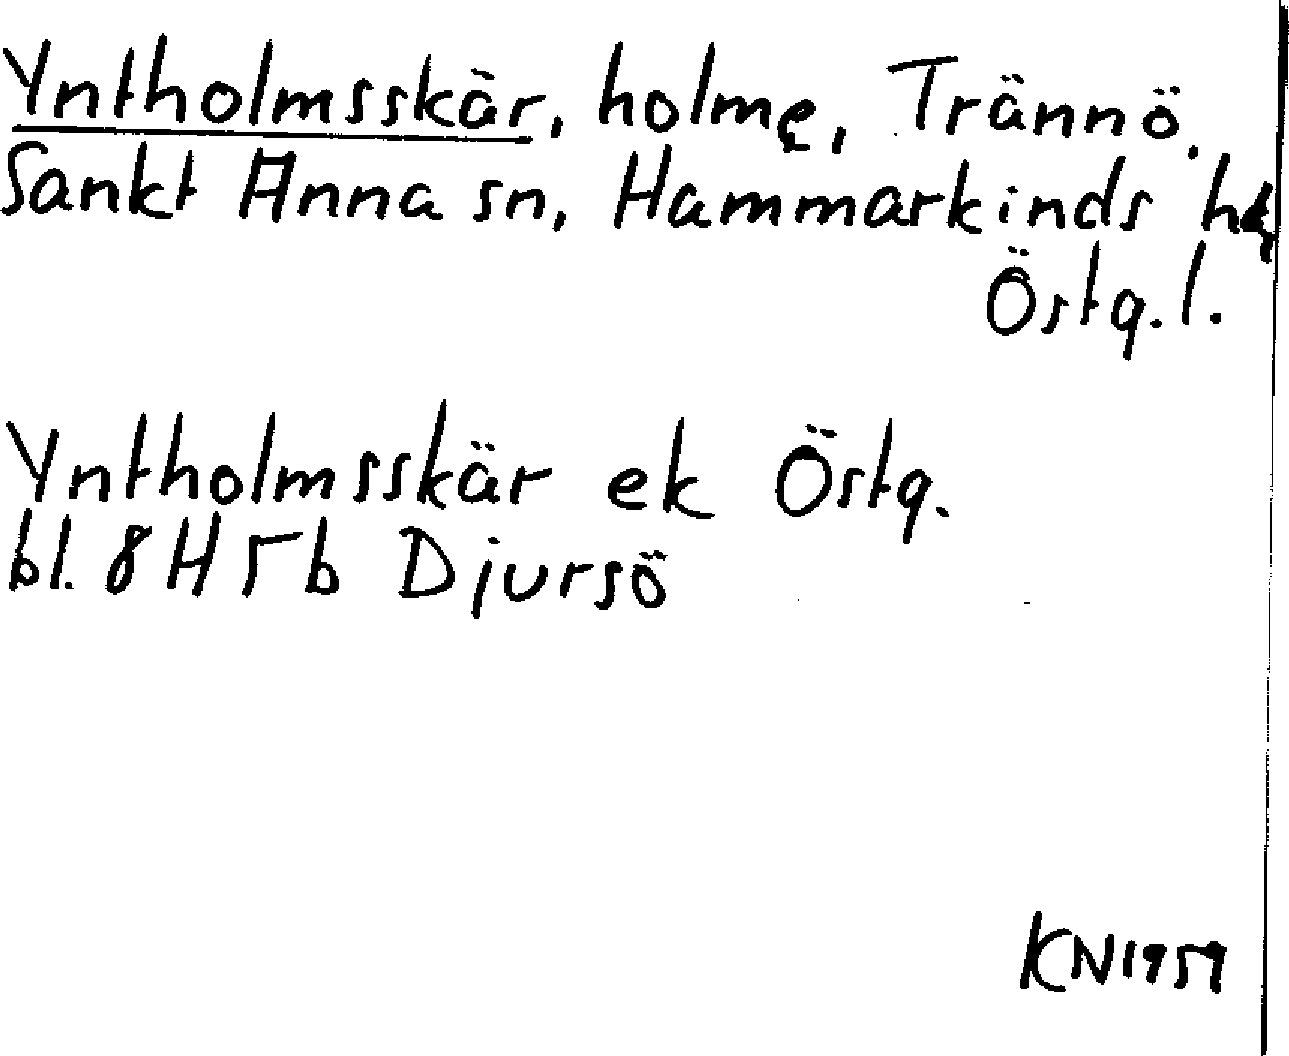 Yntholmsskär, holme, Trännö.
Sankt Anna sn, Hammarkinds hd,
Östg. l.
Yntholmsskär ek Östg.
bl. 8H 5b Djursö
KN1959